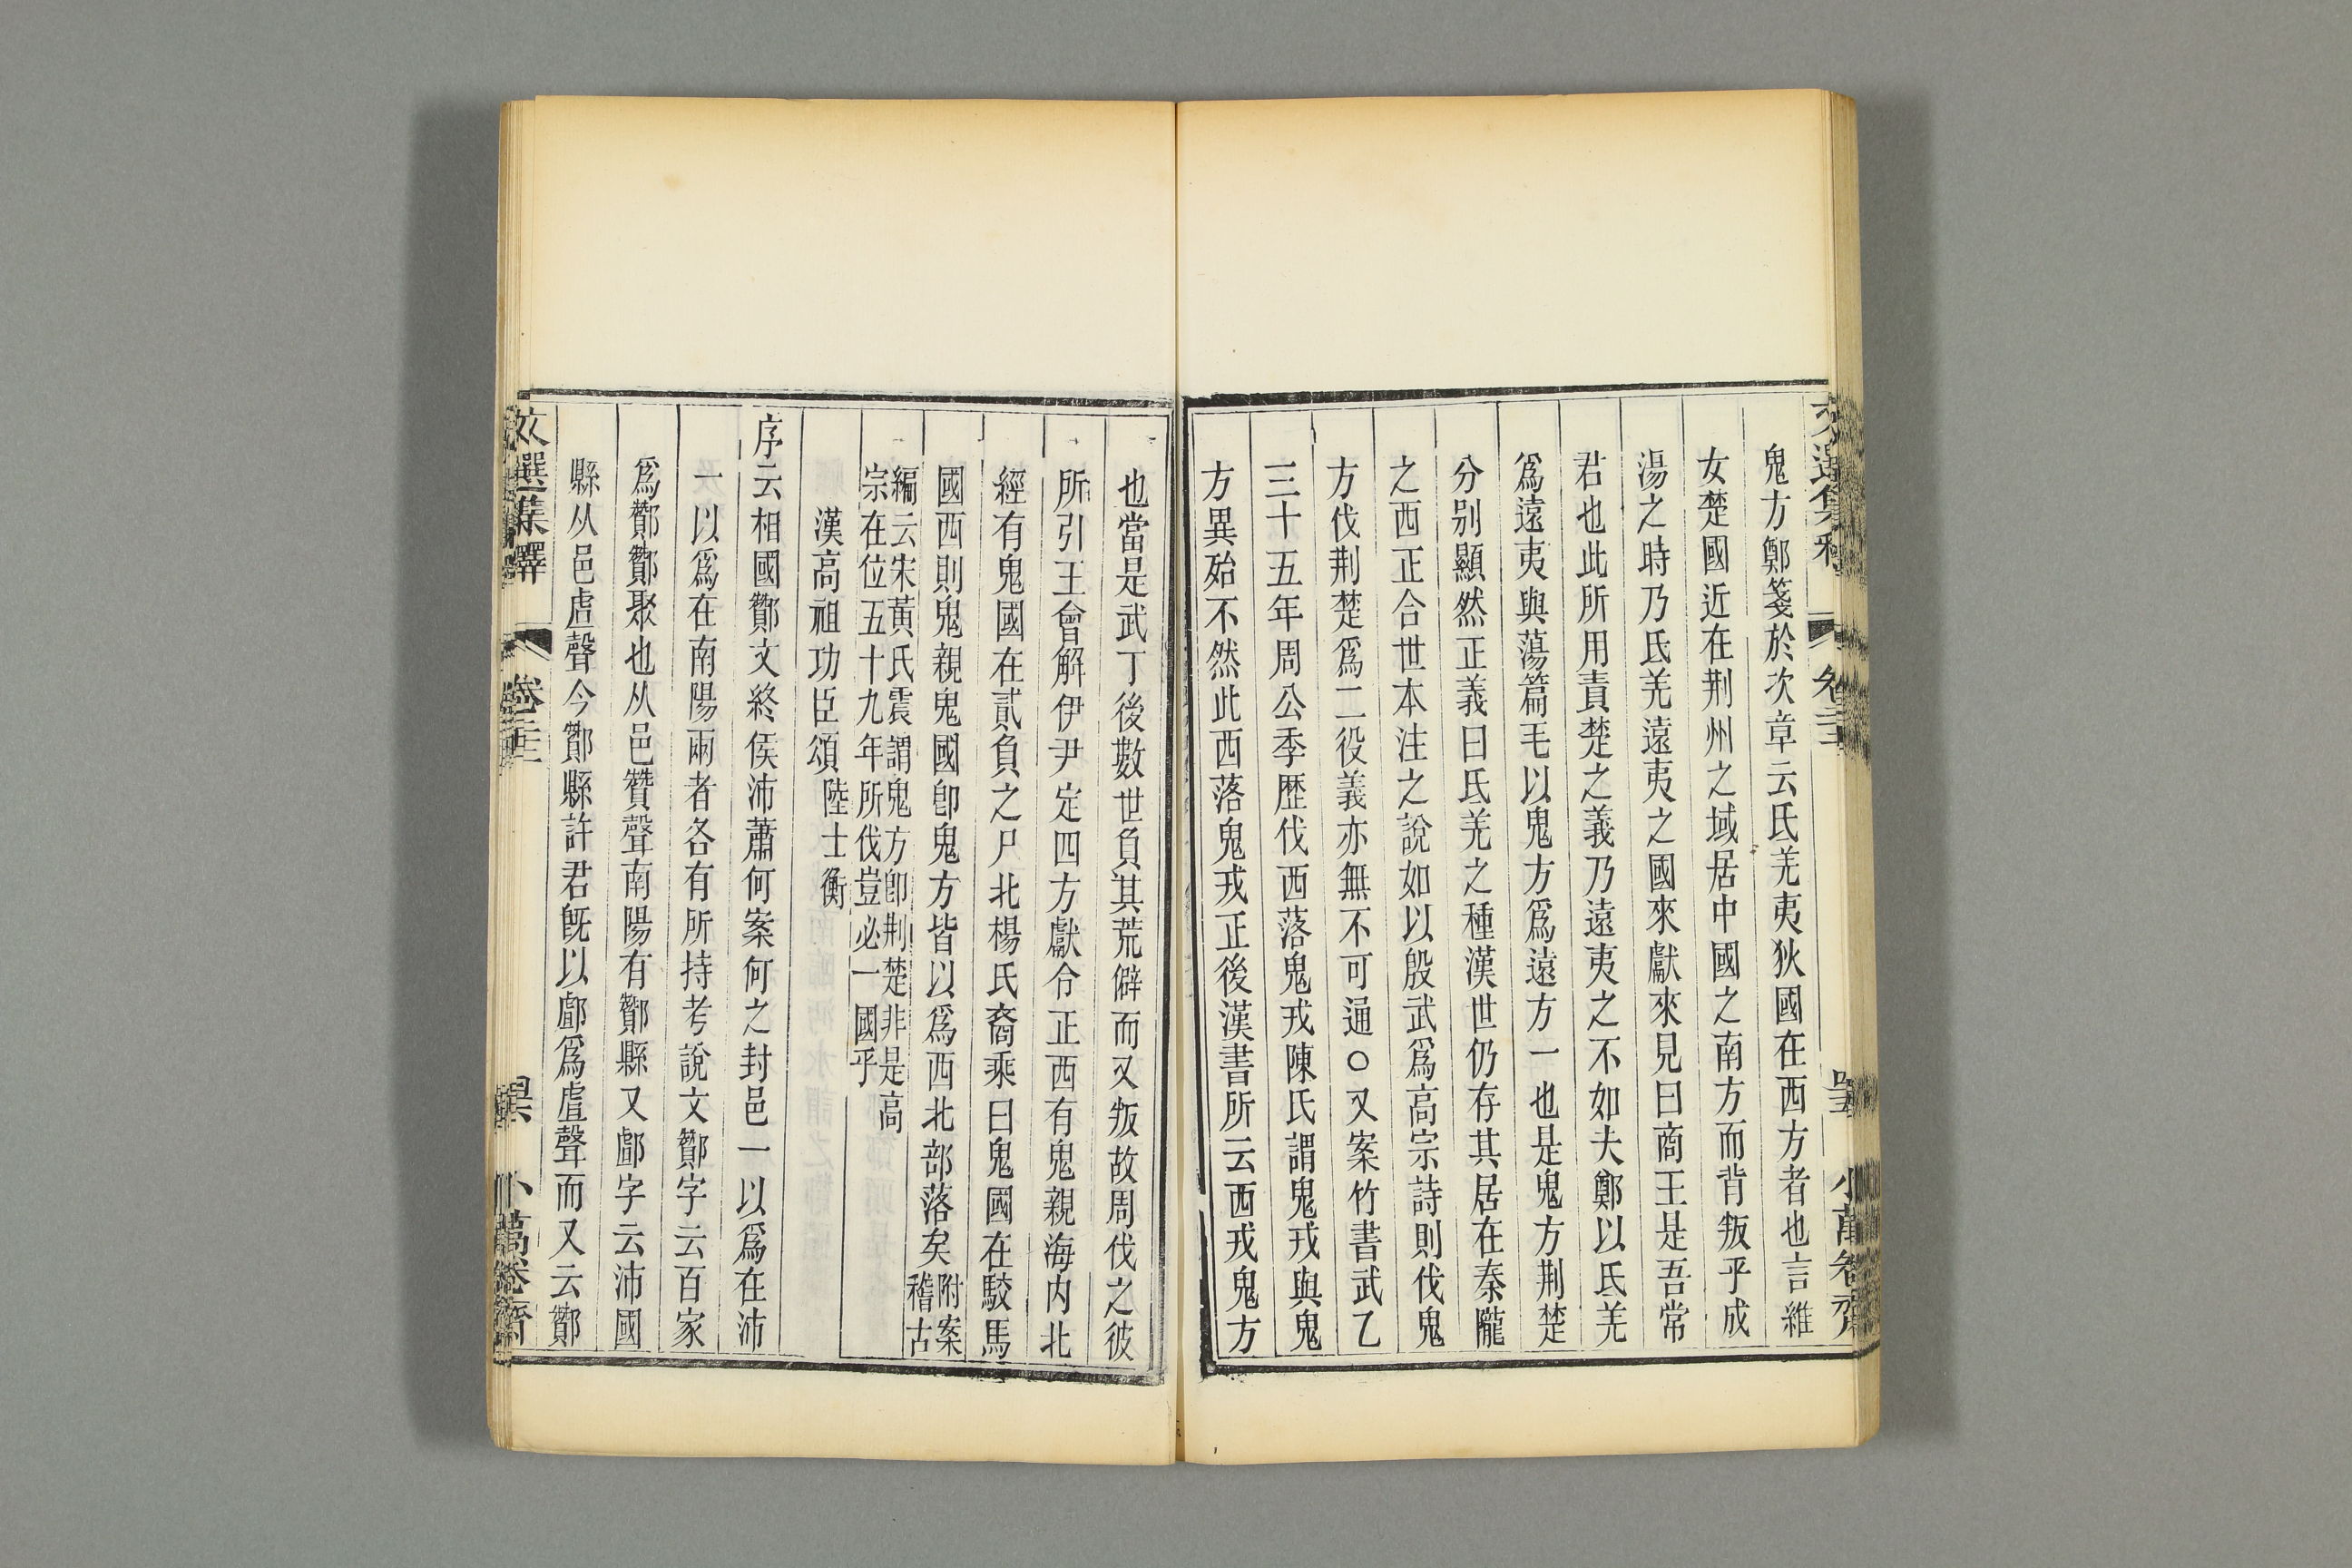 鬼方鄭箋於次章云氐羌夷狄國在西方者也言維
女楚國近在荆州之域居中國之南方而背叛乎成
湯之時乃氐羌遠夷之國來獻來見曰商王是吾常
君也此所用責楚之義乃遠夷之不如夫鄭以氐羌
爲遠夷與蕩篇毛以鬼方爲遠方一也是鬼方荆楚
分别顯然正義曰氐羌之種漢世仍存其居在秦隴
之西正合世本注之說如以殷武爲高宗詩則伐鬼
方伐荆楚爲二役義亦無不可通○又案竹書武乙
三十五年周公季歴伐西落鬼戎陳氏謂鬼戎與鬼
方異殆不然此西落鬼戎正後漢書所云西戎鬼方
也當是武丁後數世負其荒僻而又叛故周伐之彼
所引王會解伊尹定四方獻令正西有鬼親海内北
經有鬼國在貳負之尸北楊氏裔乘曰鬼國在駮馬
國西則鬼親鬼國卽鬼方皆以爲西北部落矣附案稽古
編云宋黃氏震謂鬼方卽荆楚非是高
宗在位五十九年所伐豈必一國乎
漢高祖功臣頌 陸士衡
序云相國酇文終侯沛蕭何案何之封邑一以爲在沛
一以爲在南陽兩者各有所持考說文酇字云百家
爲酇酇聚也从邑贊聲南陽有酇縣又䣜字云沛國
縣从邑虘聲今酇縣許君旣以䣜爲虘聲而又云酇
文選集釋 卷二十三 小萬卷齋